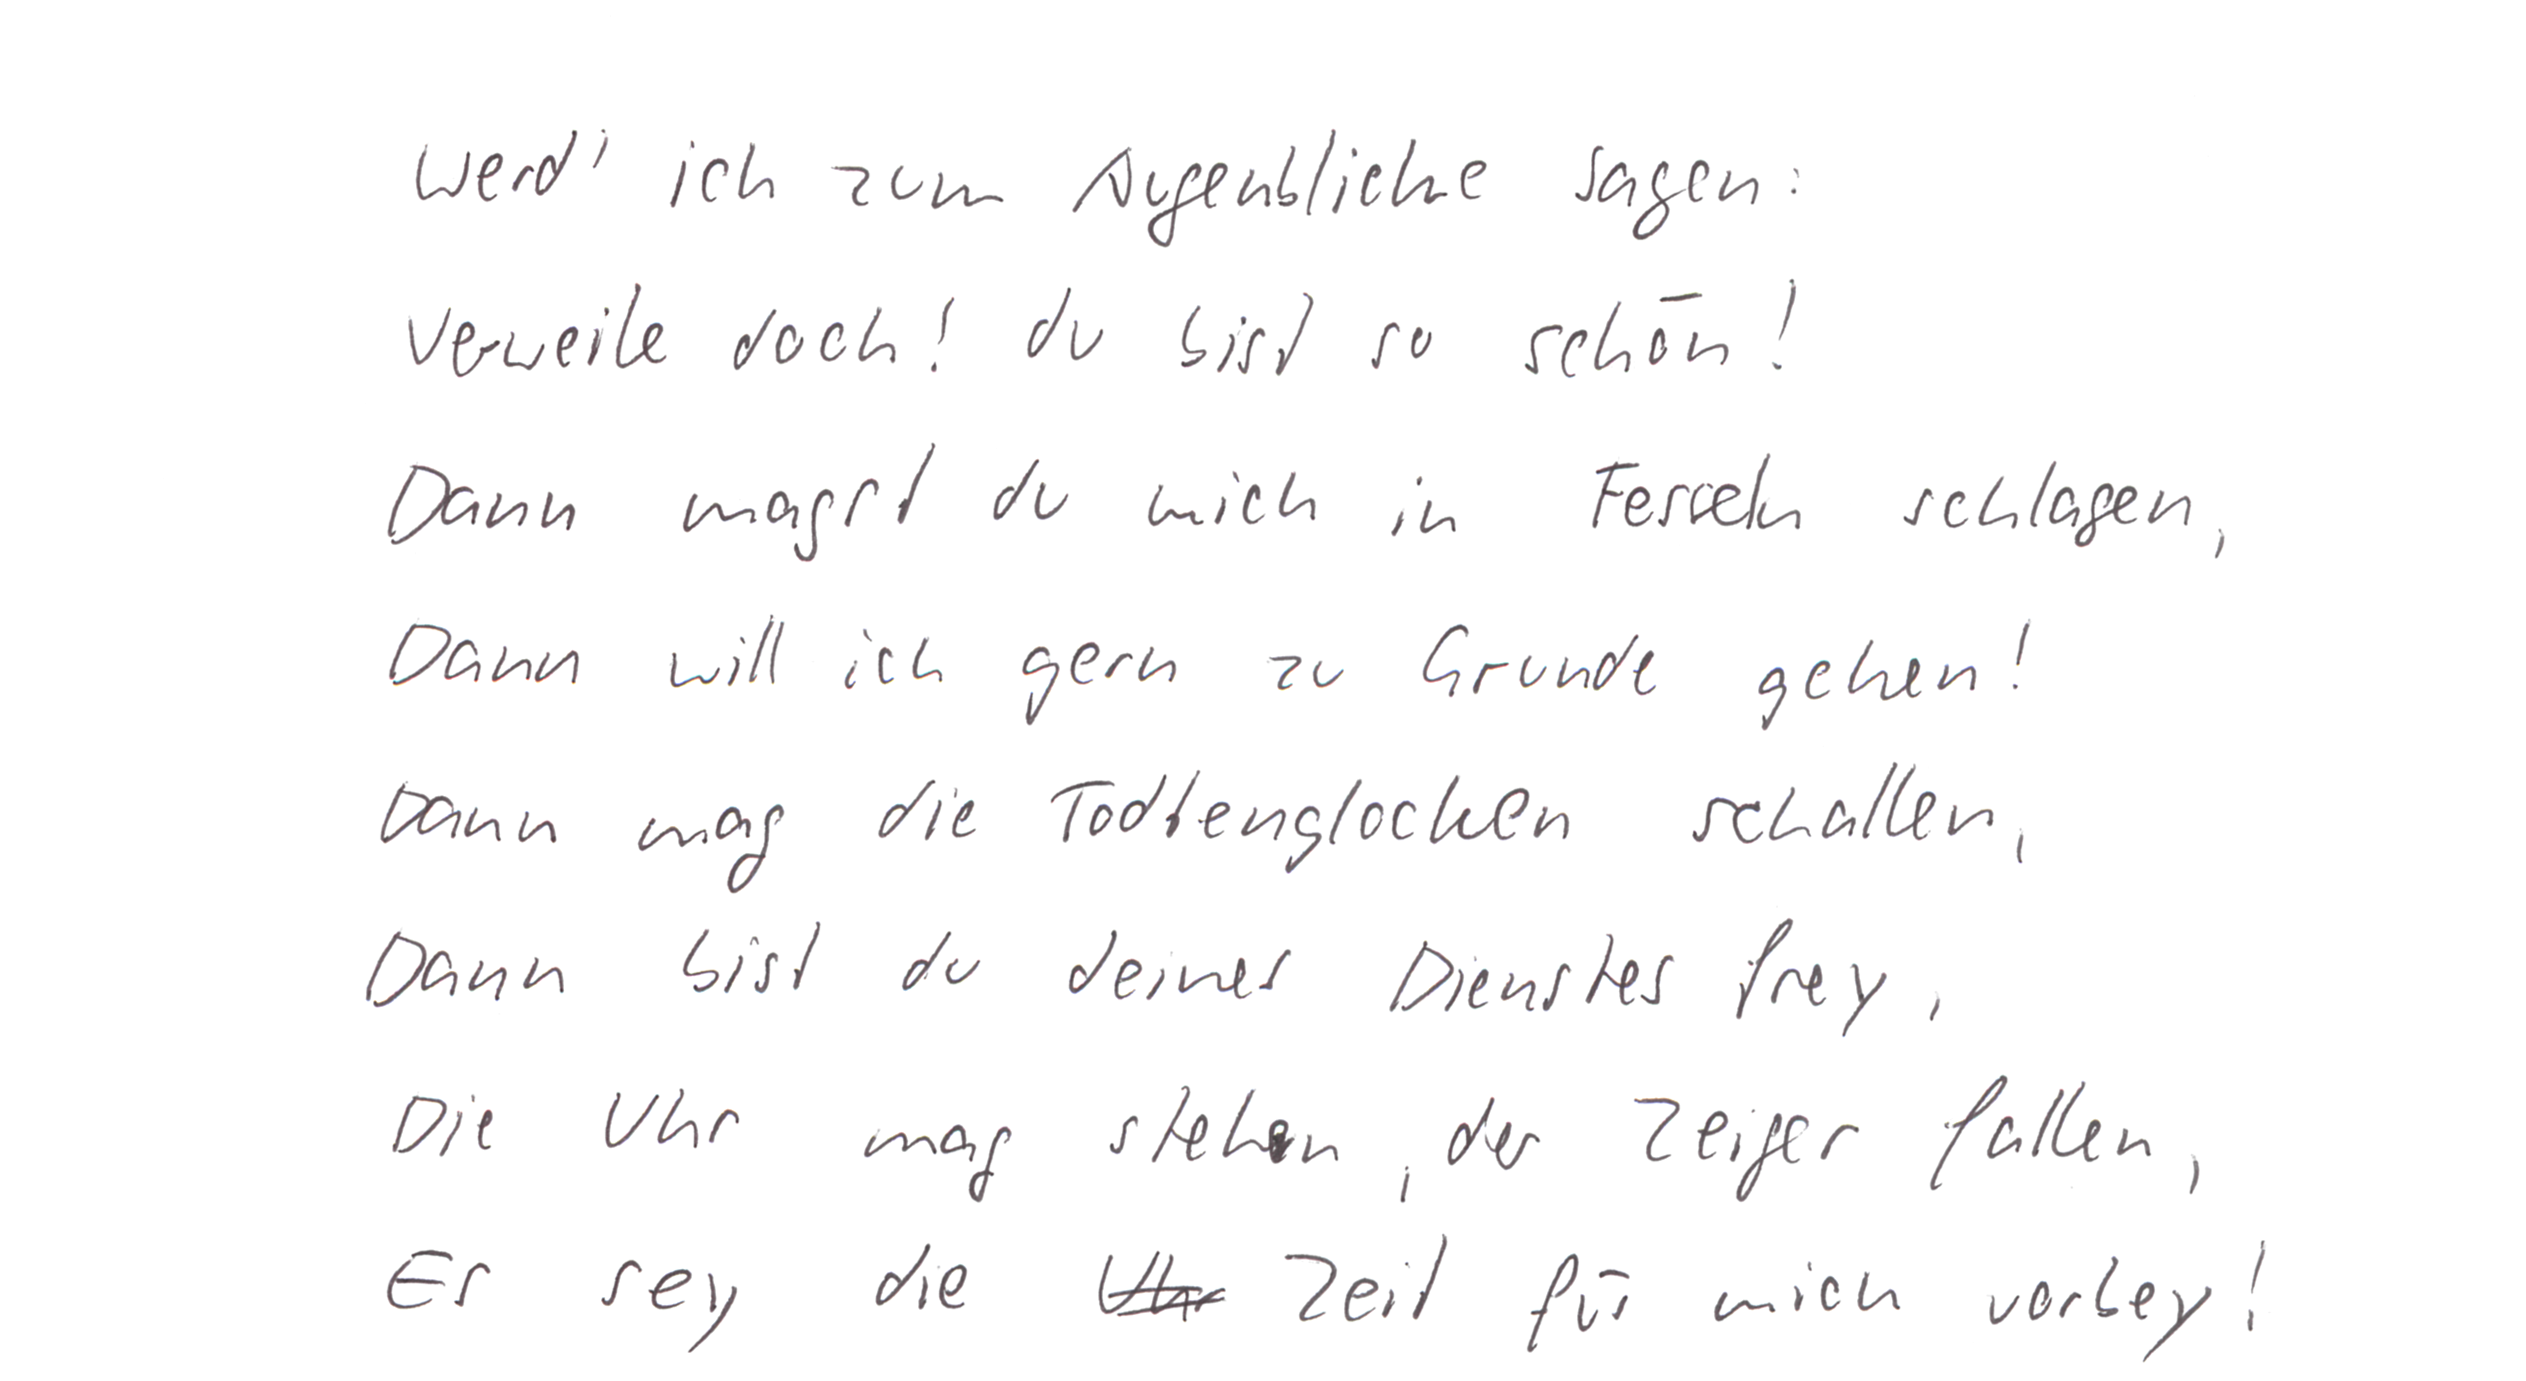 Werd' ich zum Augenblicke sagen:
Verweile doch! du bist so schön!
Dann magst du mich in Fesseln schlagen,
Dann will ich gern zu Grunde gehen!
Dann mag die Todtenglocken schallen,
Dann bist du deines Dienstes frey,
Die Uhr mag stehen, der Zeiger fallen,
Es sey die Uhr Zeit für mich vorbey!